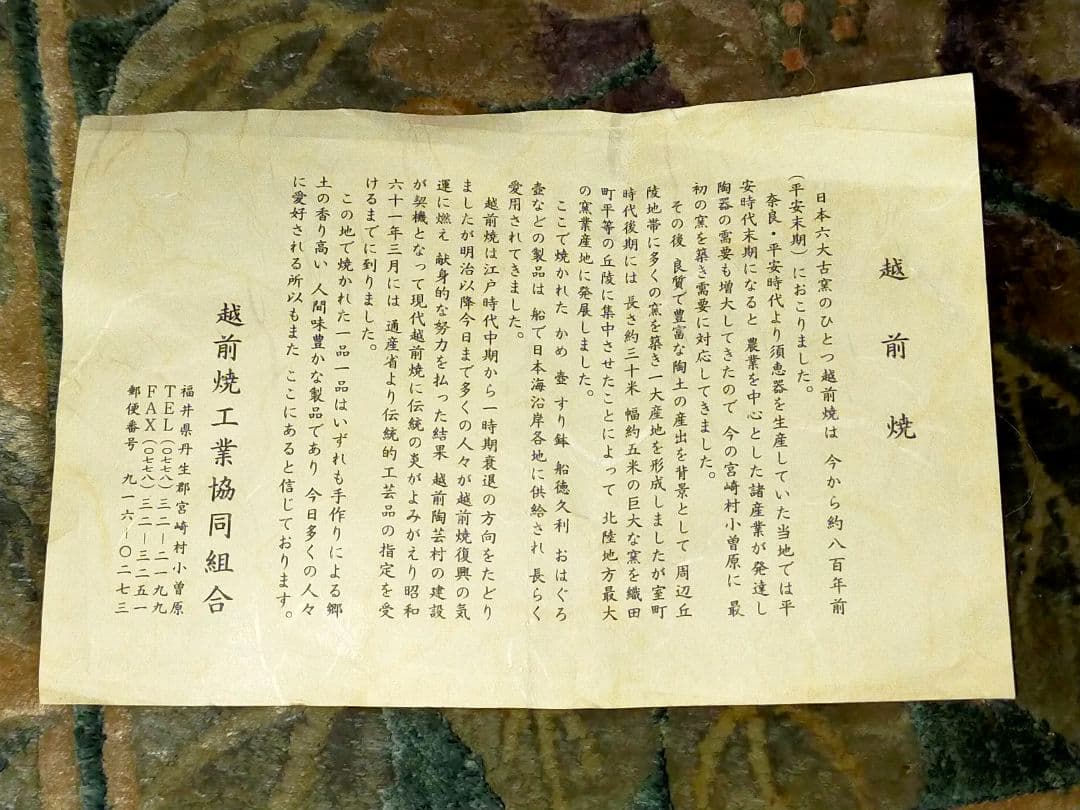 越前焼
日本六大古窯のひとつ越前焼は 今から約八百年前
(平安末期)におこりました。
奈良・平安時代より須恵器を生産していた当地では平
安時代末期になると 農業を中心とした諸産業が発達し
陶器の需要も増大してきたので 今の宮崎村小曽原に 最
初の窯を築き需要に対応してきました。
その後 良質で豊富な陶土の産出を背景として 周辺丘
陵地帯に多くの窯を築き一大産地を形成しましたが室町
時代後期には 長さ約三十米 幅約五米の巨大な窯を織田
町平等の丘陵に集中させたことによって 北陸地方最大
の窯業産地に発展しました。
ここで焼かれた かめ 壺 すり鉢 船徳久利 おはぐろ
壺などの製品は 船で日本海沿岸各地に供給され 長らく
愛用されてきました。
越前焼は江戸時代中期から一時期衰退の方向をたどり
ましたが明治以降今日まで多くの人々が越前焼復興の気
運に燃え 献身的な努力を払った結果 越前陶芸村の建設
が契機となって現代越前焼に伝統の炎がよみがえり昭和
六十一年三月には 通産省より伝統的工芸品の指定を受
けるまでに到りました。
この地で焼かれた一品一品はいずれも手作りによる郷
土の香り高い 人間味豊かな製品であり 今日多くの人々
に愛好される所以もまた ここにあると信じております。
越前焼工業協同組合
福井県丹生郡宮崎村小曽原
TEL(〇七七八)三二ー二一九九
FAX(〇七七八)三二ー三二五一
郵便番号 九一六ー〇二七三